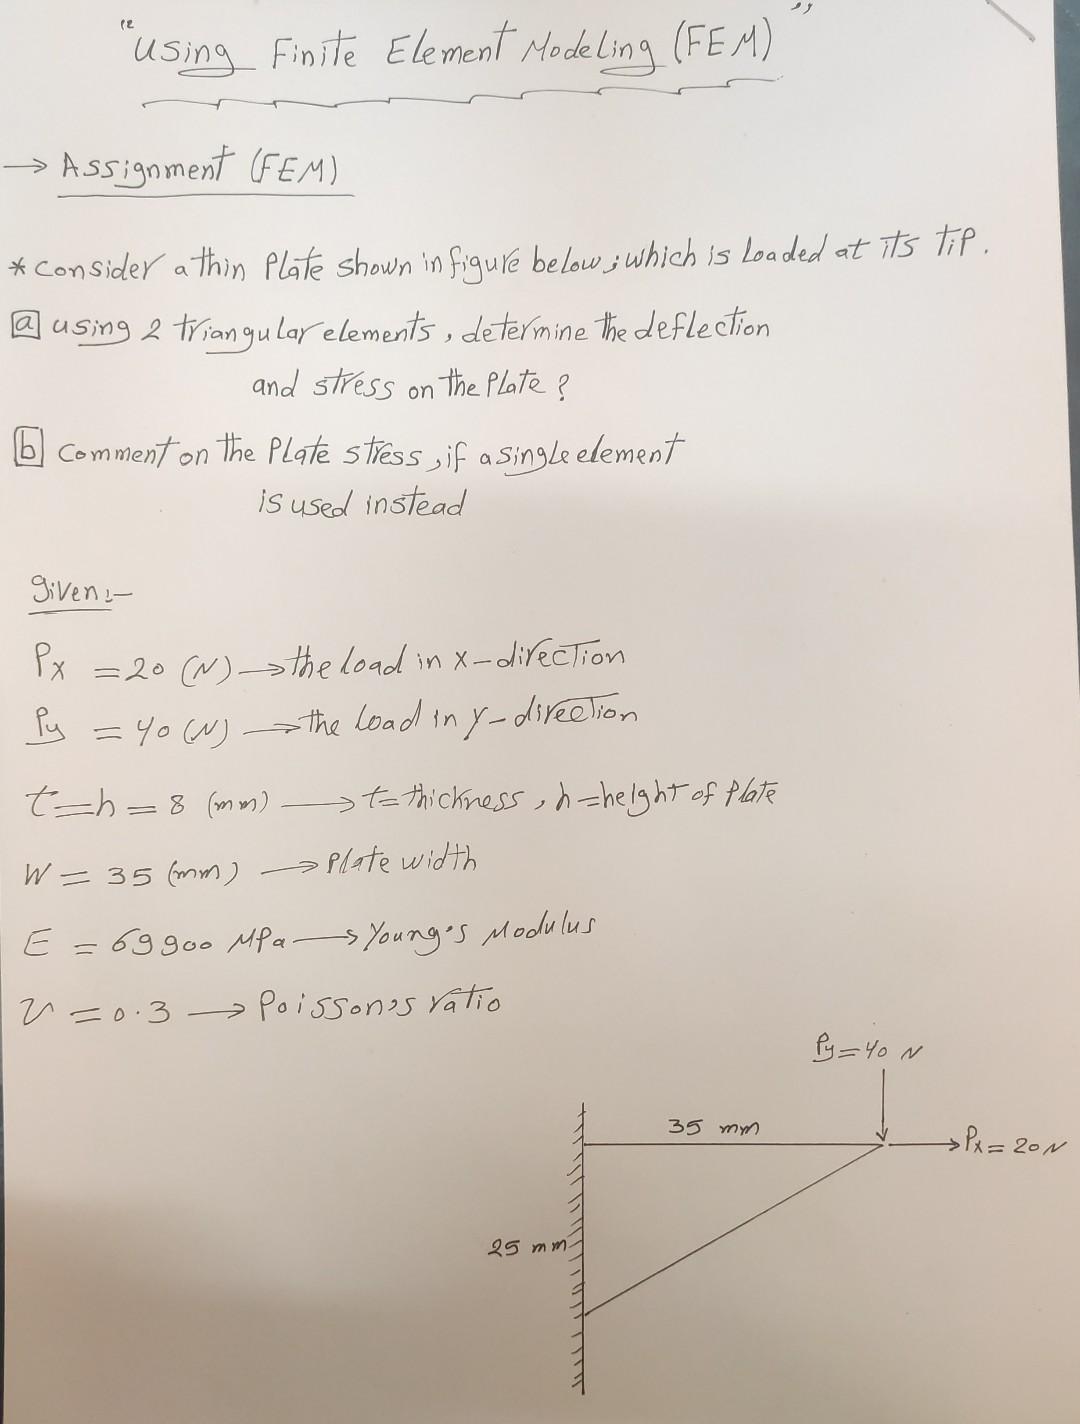 "Using Finite Element Modeling (FEM)"
→ Assignment (FEM)
* Consider a thin Plate shown in figure below; which is Loaded at its Tip.
[a] using 2 triangular elements, determine the deflection
and stress on the Plate?
[b] Comment on the Plate stress, if a single element
is used instead
given:-
Px = 20 (N) → the load in x-direction
Py = 40 (N) → the load in y-direction
t = h = 8 (mm) → t = thickness, h = height of plate
W = 35 (mm) → Plate width
E = 69900 MPa → Young's Modulus
ν = 0.3 → Poisson's ratio
Py = 40 N
35 mm
Px = 20 N
25 mm